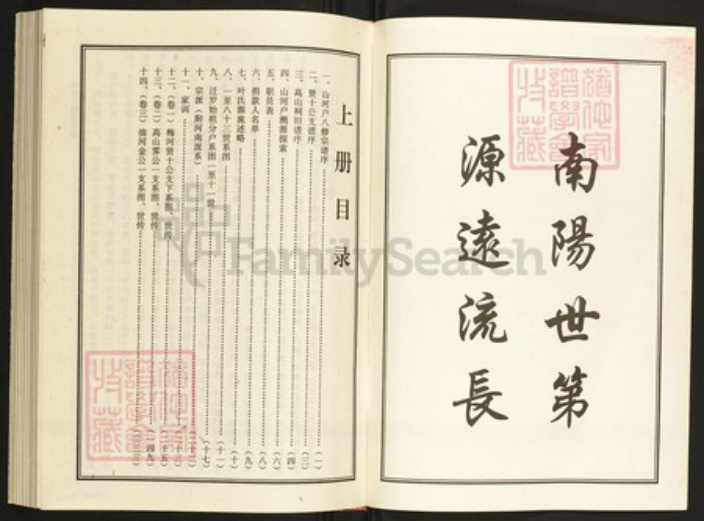 南陽世第
源遠流長
上册目录
一、山河户八修宗谱序 (一)
二、贤十公支谱序
三、高山祠旧谱序 (三)
四、山河户渊源探索 (四)
五、职员表 (六)
六、捐款人名单 (八)
七、叶氏源流述略 (九)
八、一至八十三世系图 (十)
九、迁罗始祖分户系图(一至十一世) (十一)
十、宗派(附河南派系) (十七)
十一、家训
十二、(卷一)梅河贤十公支下系图、世传
十三、(卷二)高山霁公一支系图、世传 (四九)
十四、(卷三)油河金公一支系图、世传
FamilySearch